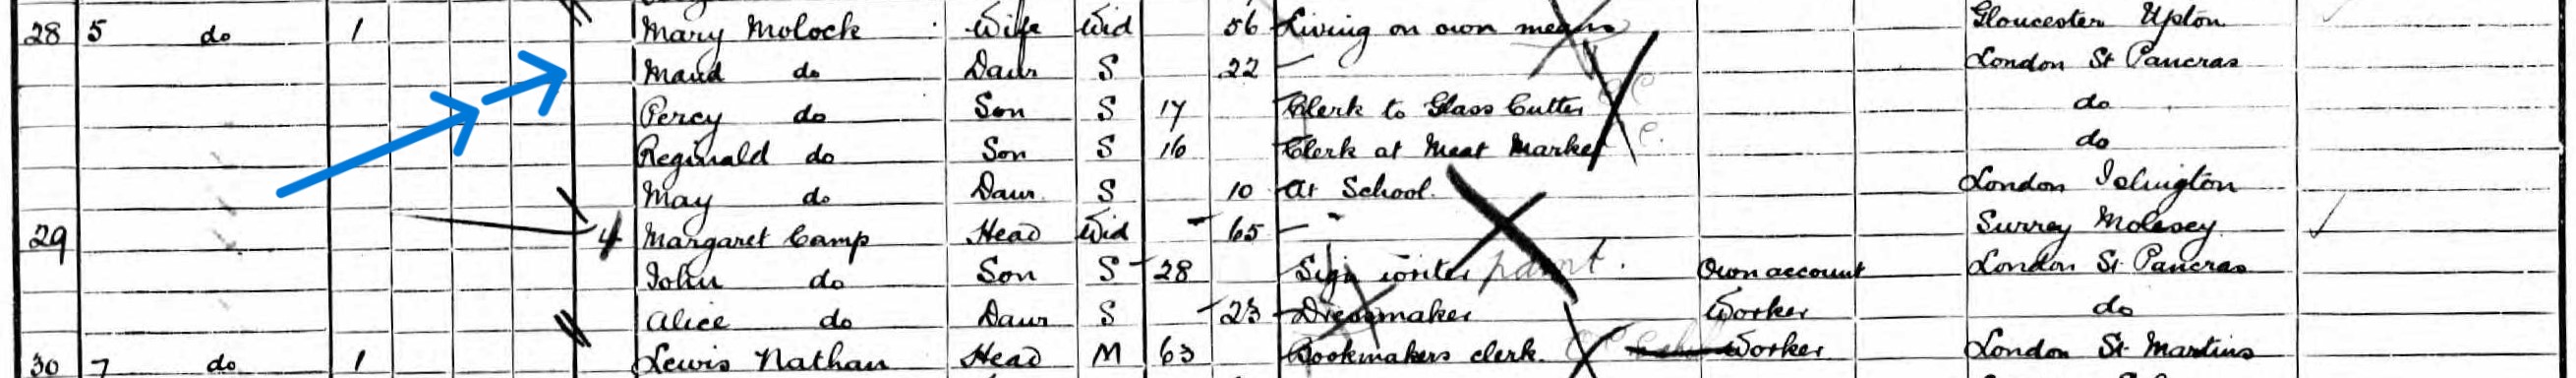 28 5 do 1 Mary Molock Wife Wid 56 Living on own means Gloucester Upton
Maud do Daur S 22 — London St Pancras
Percy do Son S 17 Clerk to Glass Cutter do
Reginald do Son S 16 Clerk at Meat Market do
May do Daur S 10 At School. London Islington
29 4 Margaret Camp Head Wid 65 — Surrey Molesey
John do Son S 28 Sign writer paint. Own account London St Pancras
Alice do Daur S 23 Dressmaker Worker do
30 7 do 1 Lewis Nathan Head M 63 Bookmakers clerk. Worker London St Martins